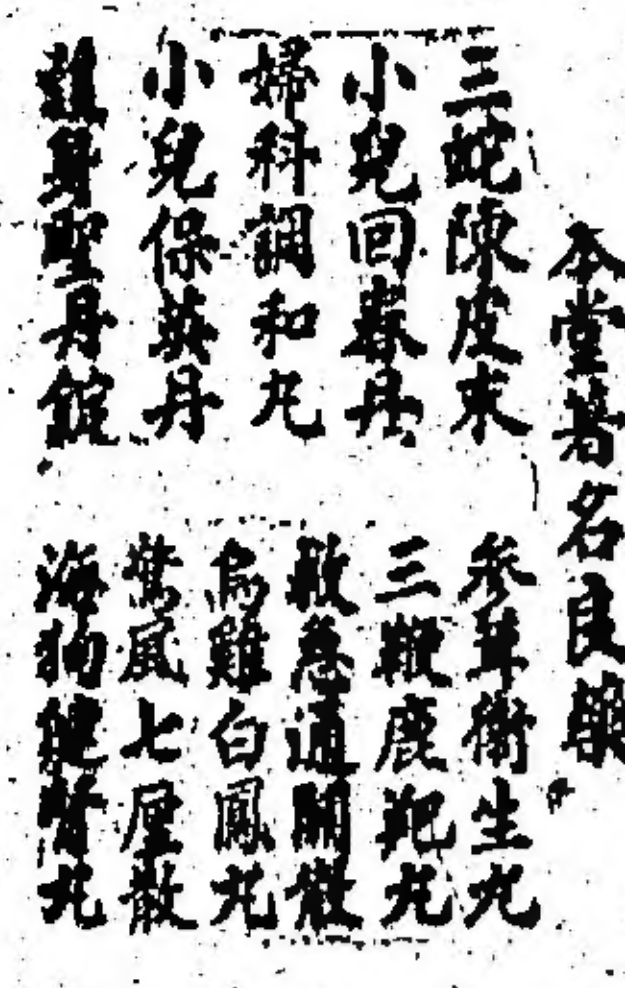 本堂著名良藥
三蛇陳皮末
小兒回春丹
婦科調和丸
小兒保英丹
護身聖丹錠
參茸衛生丸
三鞭鹿丸
救急通關散
烏雞白鳳丸
驚風七厘散
海狗健腎丸